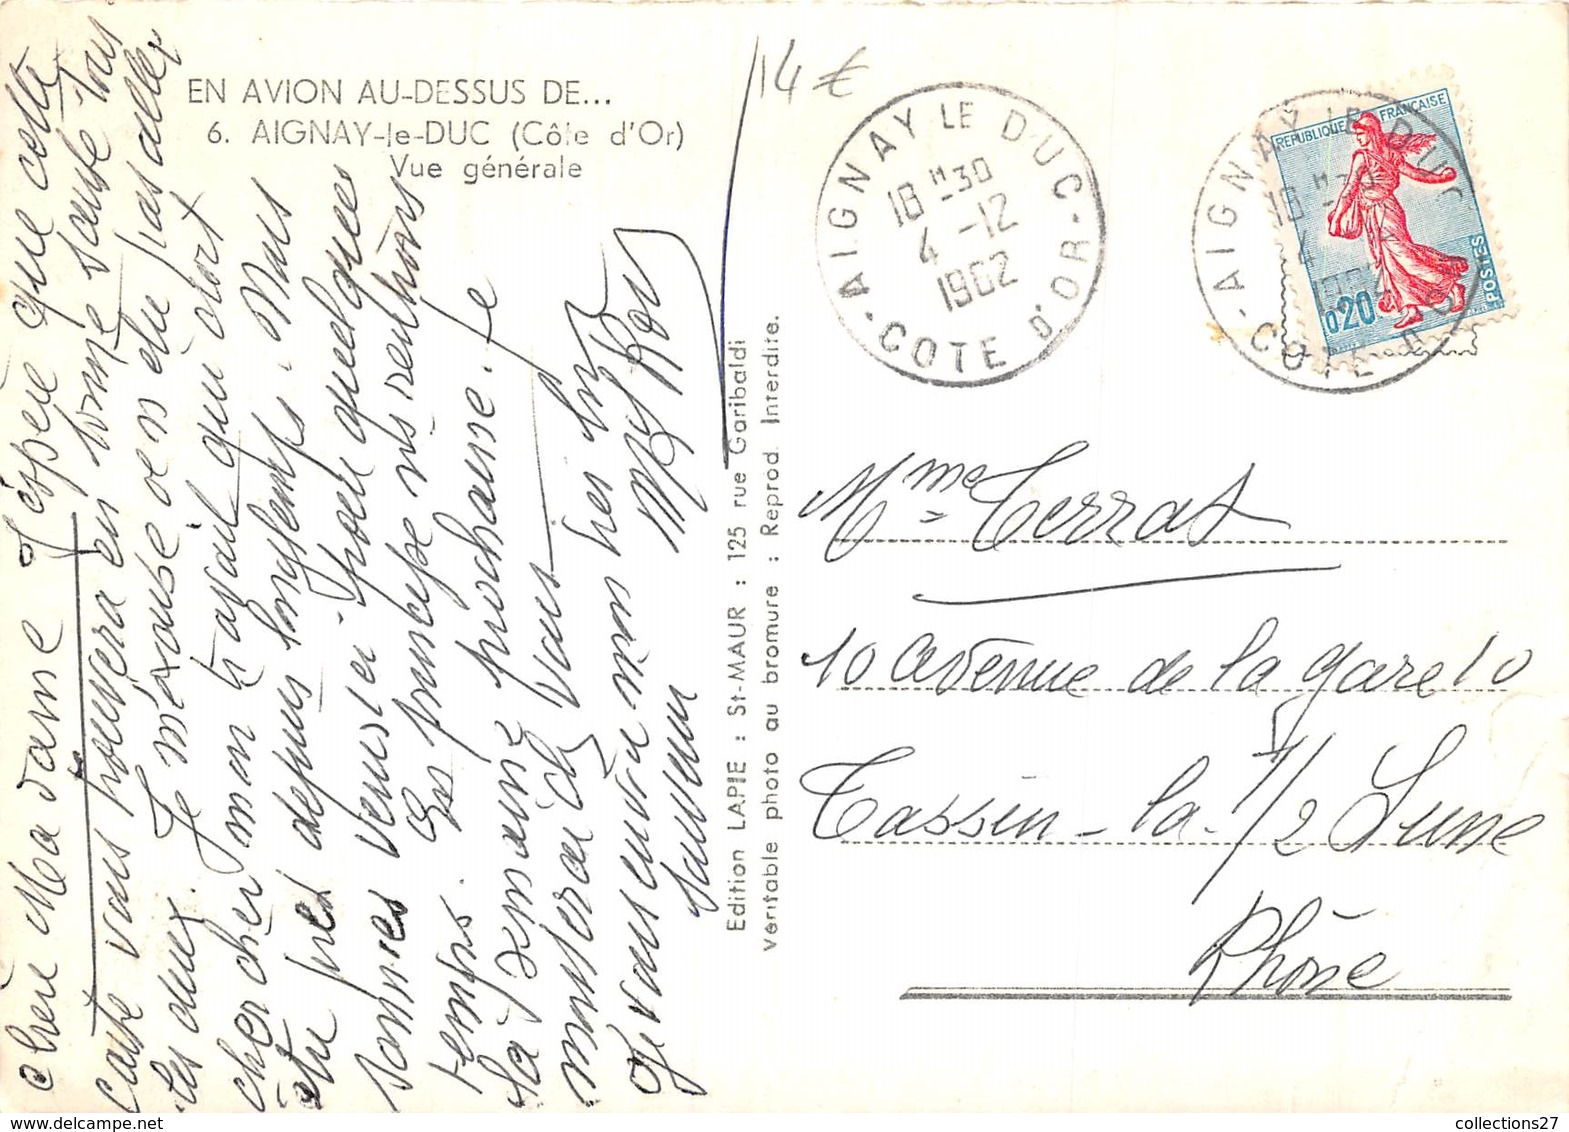 EN AVION AU-DESSUS DE...
6. AIGNAY-le-DUC (Côte d'Or)
Vue générale
chère Madame J'espère que cette
carte vous trouvera en bonne santé tous
les deux. Je m'excuse de ne pas aller
chercher mon travail qui doit
être prêt depuis longtemps. Nous
sommes venus ici pour quelques
temps. En principe nous rentrons
la semaine prochaine. Je
passerai chez vous
Je vous envoie mon
souvenir
Edition LAPIE : St-MAUR : 125 rue Garibaldi
Véritable photo au bromure : Reprod. Interdite.
14 €
AIGNAY LE DUC
18 H30
4 -12
1962
- COTE D'OR -
AIGNAY LE DUC
18 H30
4
1962
- COTE D'OR
REPUBLIQUE FRANÇAISE
0,20
POSTES
Mme Terrat
10 avenue de la gare 10
Tassin-la-1/2 Lune
Rhône
collections27